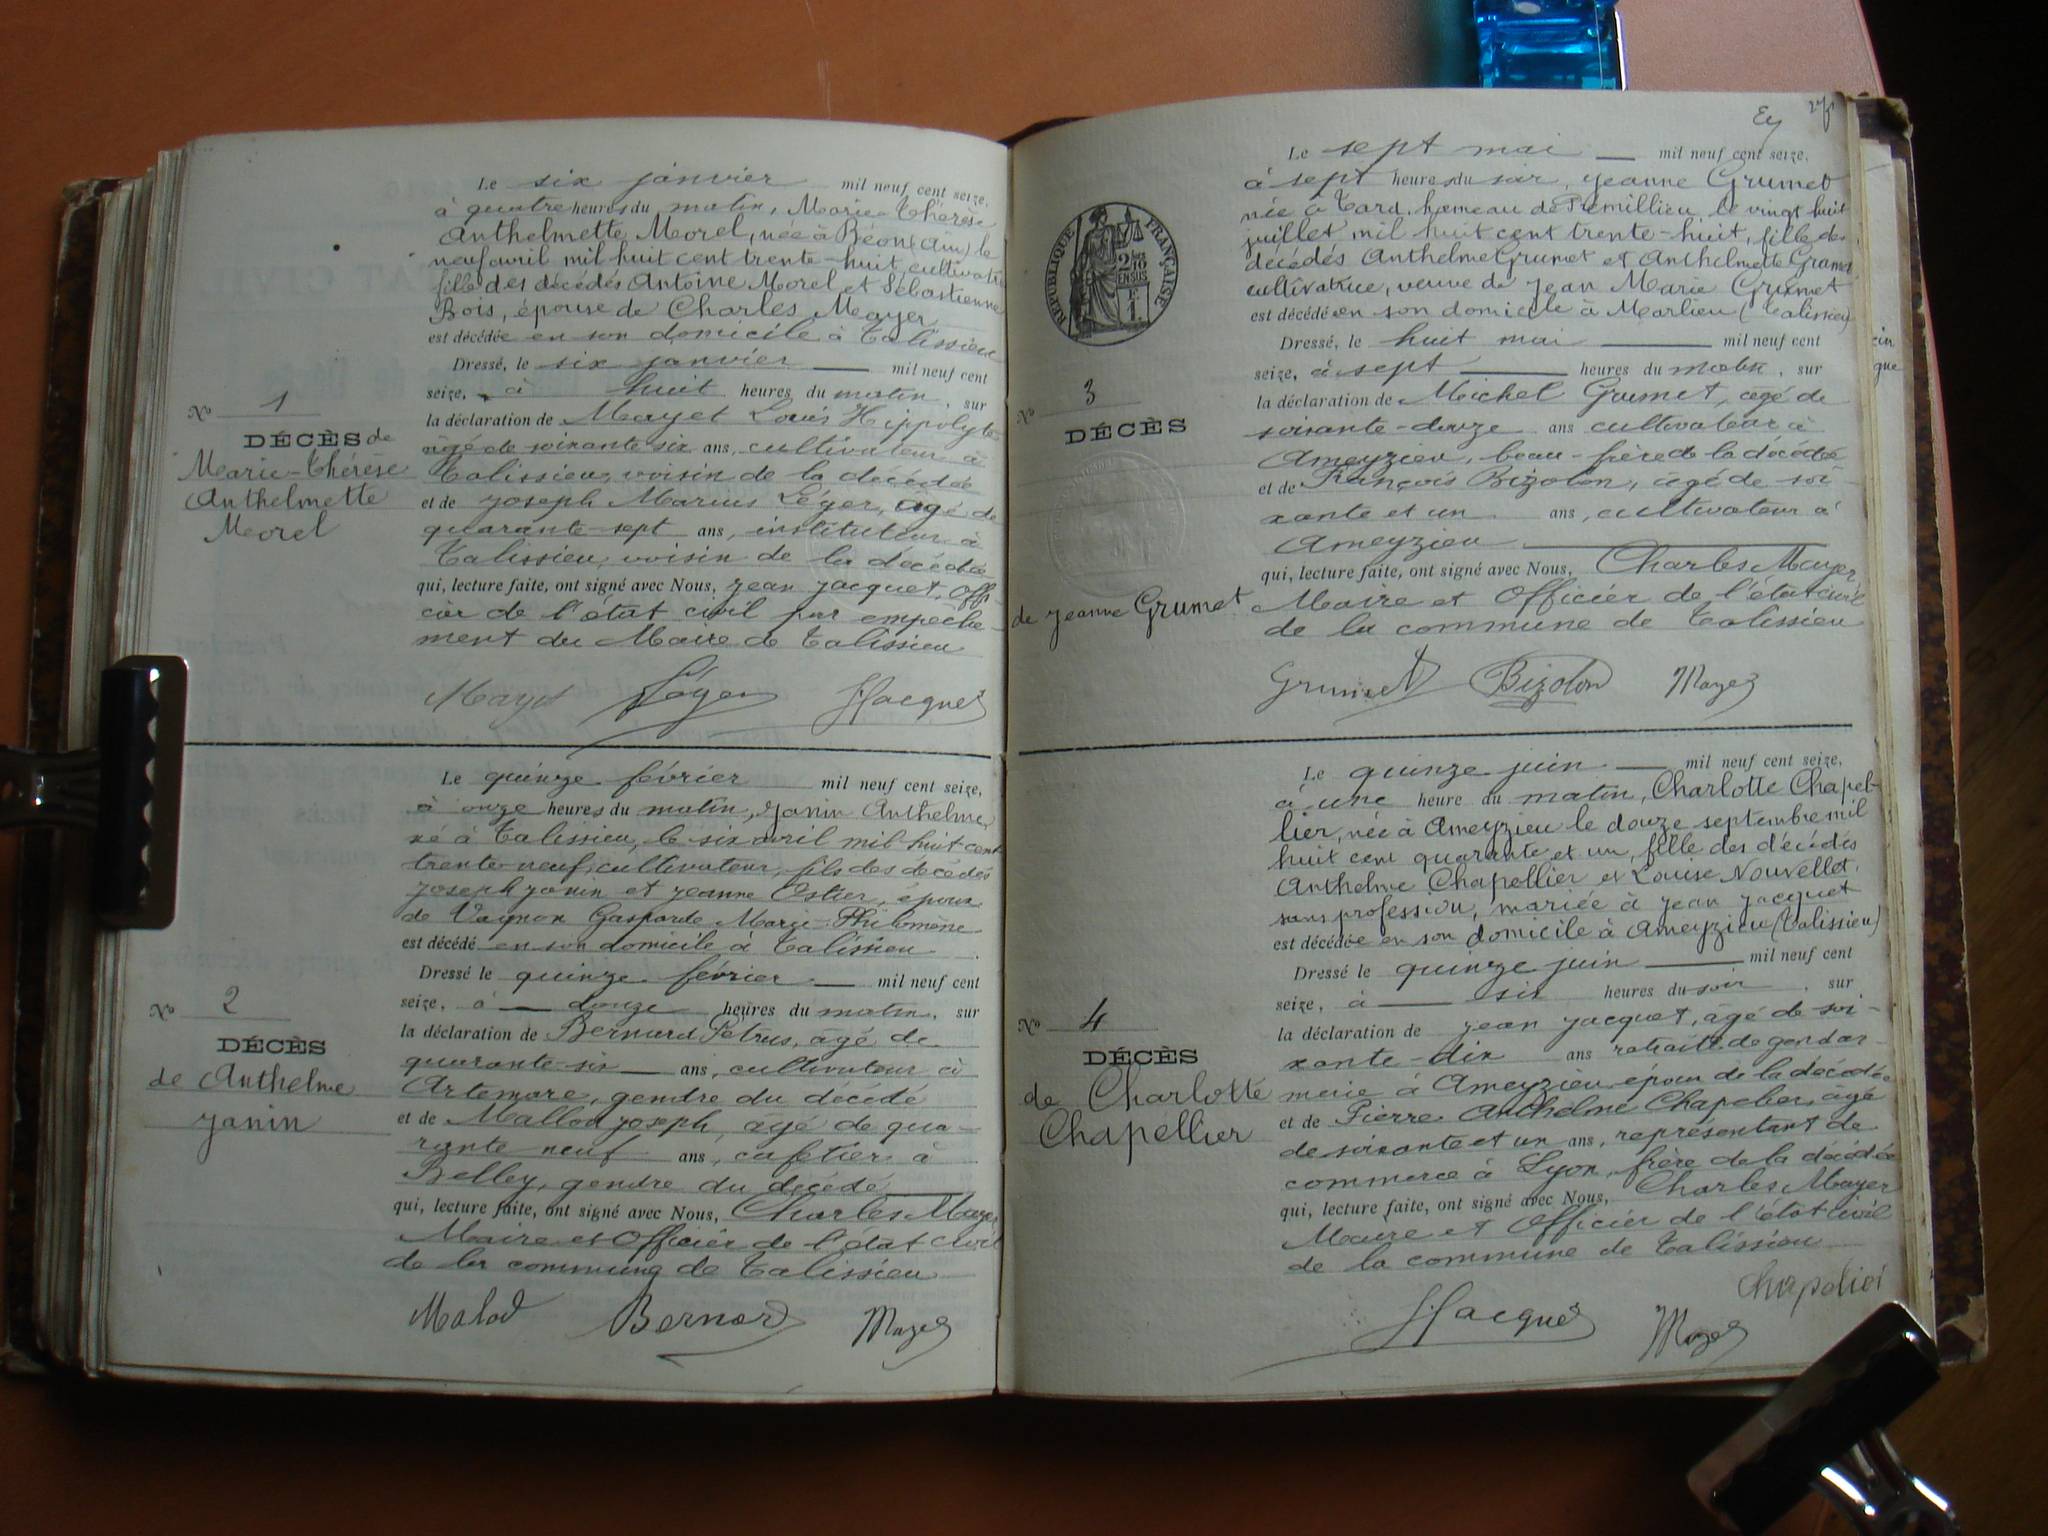 Le six janvier mil neuf cent seize,
à quatre heures du matin, Marie-Thérèse
Anthelmette Morel, née à Béon (Ain) le
neuf avril mil huit cent trente-huit, cultivatrice
fille des décédés Antoine Morel et Sébastienne
Bois, épouse de Charles Mayer
est décédée en son domicile à Talissieu
Dressé, le six janvier mil neuf cent
seize, à huit heures du matin, sur
la déclaration de Mayet Louis Hippolyte
âgé de soixante-six ans, cultivateur à
Talissieu, voisin de la décédée
et de Joseph Marius Léger, âgé de
quarante-sept ans, instituteur à
Talissieu, voisin de la décédée
qui, lecture faite, ont signé avec Nous, Jean Jacquet, Offi-
cier de l'état civil par empêche-
ment du Maire de Talissieu
Mayet Léger J Jacquet
No 1
DÉCÈS de
Marie-Thérèse
Anthelmette
Morel
Le quinze février mil neuf cent seize,
à onze heures du matin, Janin Anthelme,
né à Talissieu, le six avril mil huit cent
trente-neuf, cultivateur, fils des décédés
Joseph Janin et Jeanne Ostier, époux
de Vagnon Gasparde Marie-Philomène
est décédé en son domicile à Talissieu
Dressé le quinze février mil neuf cent
seize, à douze heures du matin, sur
la déclaration de Bernard Petrus, âgé de
quarante-six ans, cultivateur à
Artemare, gendre du décédé
et de Mallod Joseph, âgé de qua-
rante neuf ans, cafetier à
Belley, gendre du décédé
qui, lecture faite, ont signé avec Nous, Charles Mayer
Maire et Officier de l'état civil
de la commune de Talissieu
Malod Bernard Mayer
No 2
DÉCÈS
de Anthelme
Janin
Ey
RÉPUBLIQUE FRANÇAISE
2/10 EN SUS
1 F.
Le sept mai mil neuf cent seize,
à sept heures du soir, Jeanne Grumet
née à Tard, hameau de Prémillieu, le vingt huit
juillet mil huit cent trente-huit, fille des
décédés Anthelme Grumet et Anthelmette Grumet
cultivatrice, veuve de Jean Marie Grumet
est décédée en son domicile à Marlieu (Talissieu)
Dressé, le huit mai mil neuf cent
seize, à sept heures du matin, sur
la déclaration de Michel Grumet, âgé de
soixante-douze ans cultivateur à
Ameyzieu, beau-frère de la décédée
et de François Bizolon, âgé de soi-
xante et un ans, cultivateur à
Ameyzieu
qui, lecture faite, ont signé avec Nous, Charles Mayer
Maire et Officier de l'état civil
de la commune de Talissieu
Grumet Bizolon Mayer
No 3
DÉCÈS
de Jeanne Grumet
Le quinze juin mil neuf cent seize,
à une heure du matin, Charlotte Chapel-
lier, née à Ameyzieu le douze septembre mil
huit cent quarante et un, fille des décédés
Anthelme Chapellier et Louise Nouvellet,
sans profession, mariée à Jean Jacquet
est décédée en son domicile à Ameyzieu (Talissieu)
Dressé le quinze juin mil neuf cent
seize, à six heures du soir, sur
la déclaration de Jean Jacquet, âgé de soi-
xante-dix ans retraité de gendar-
merie à Ameyzieu, époux de la décédée
et de Pierre Anthelme Chapelier, âgé
de soixante et un ans, représentant de
commerce à Lyon, frère de la décédée
qui, lecture faite, ont signé avec Nous, Charles Mayer
Maire et Officier de l'état civil
de la commune de Talissieu
Chapelier
J Jacquet Mayer
No 4
DÉCÈS
de Charlotte
Chapellier